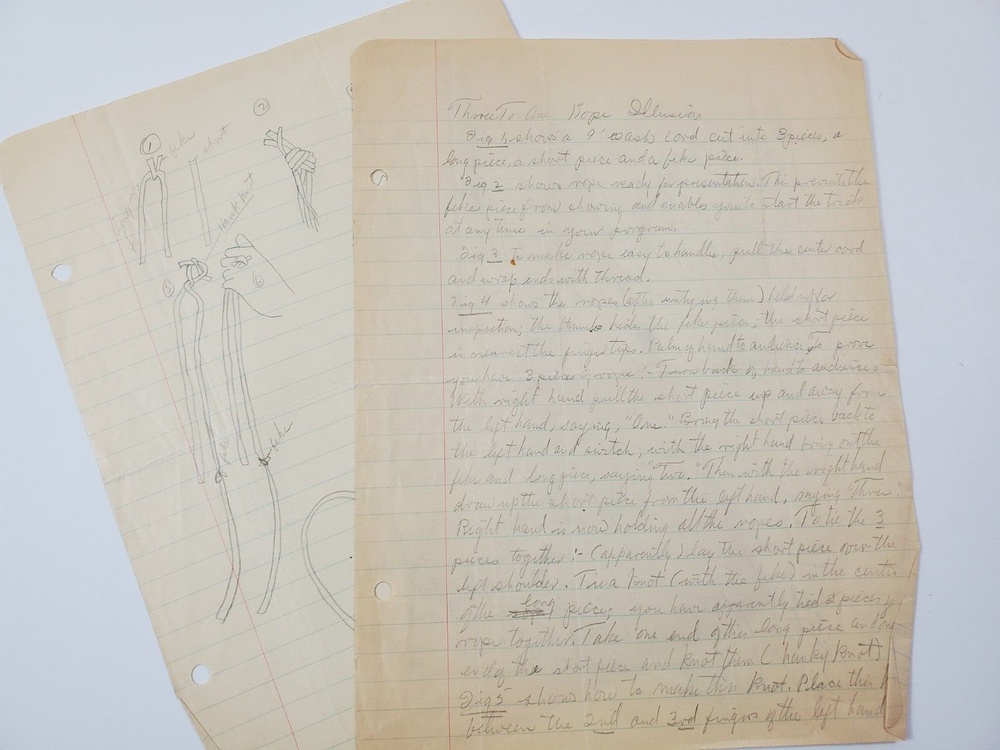 Three To One Rope Illusion
Fig 1 shows a 9' sash cord cut into 3 pieces, a
long piece, a short piece and a fake piece.
Fig 2 shows rope ready for presentation. This prevents the
fake piece from showing and enables you to start the trick
at any time in your program.
Fig 3 To make rope easy to handle, pull the center cord
and wrap ends with thread.
Fig 4 shows the ropes (after untying them) held out for
inspection; the thumb hides the fake piece; the short piece
is nearest the finger tips. Palm of hand to audience. To prove
you have 3 pieces of rope:- Turn back of hand to audience.
With right hand pull the short piece up and away from
the left hand, saying, "One." Bring the short piece back to
the left hand and switch, with the right hand bring out the
fake and long piece, saying "Two." Then with the right hand
draw up the short piece from the left hand, saying "Three."
Right hand is now holding all the ropes. To tie the 3
pieces together:- (apparently) lay the short piece over the
left shoulder. Tie a knot (with the fake) in the center
of the long piece; you have apparently tied 2 pieces
rope together. Take one end of this long piece and one
end of the short piece and knot them (hanky knot)
Fig 5 shows how to make this knot. Place this
between the 2nd and 3rd fingers of the left hand
1
fake
short
2
Hank Knot
5
6
fake